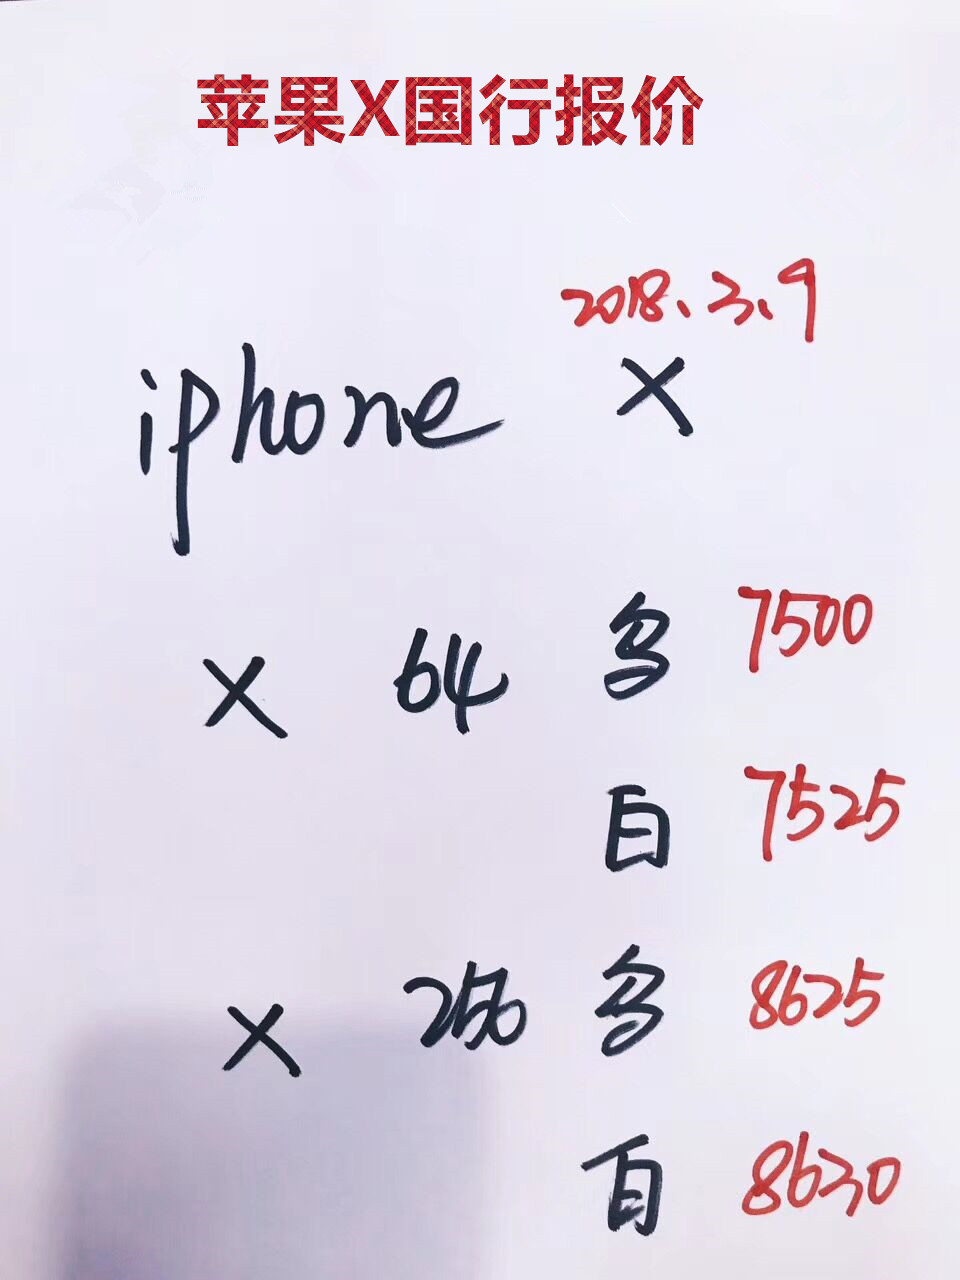 苹果X国行报价
2018.3.9
iphone X
X 64 7500
白 7525
X 256 8625
白 8630